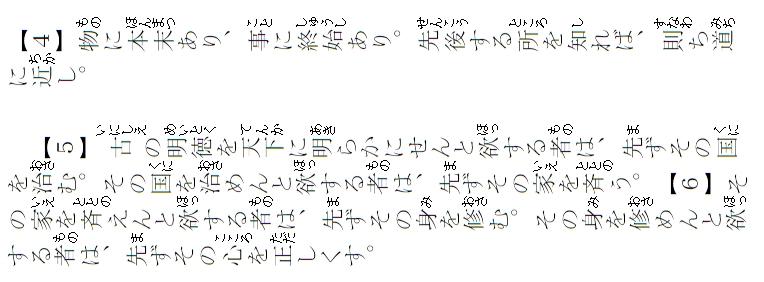 【4】物に本末あり、事に終始あり。先後する所を知れば、則ち道
に近し。
【5】古の明徳を天下に明らかにせんと欲する者は、先ずその国
を治む。その国を治めんと欲する者は、先ずその家を斉う。【6】そ
の家を斉えんと欲する者は、先ずその身を修む。その身を修めんと欲っ
する者は、先ずその心を正しくす。